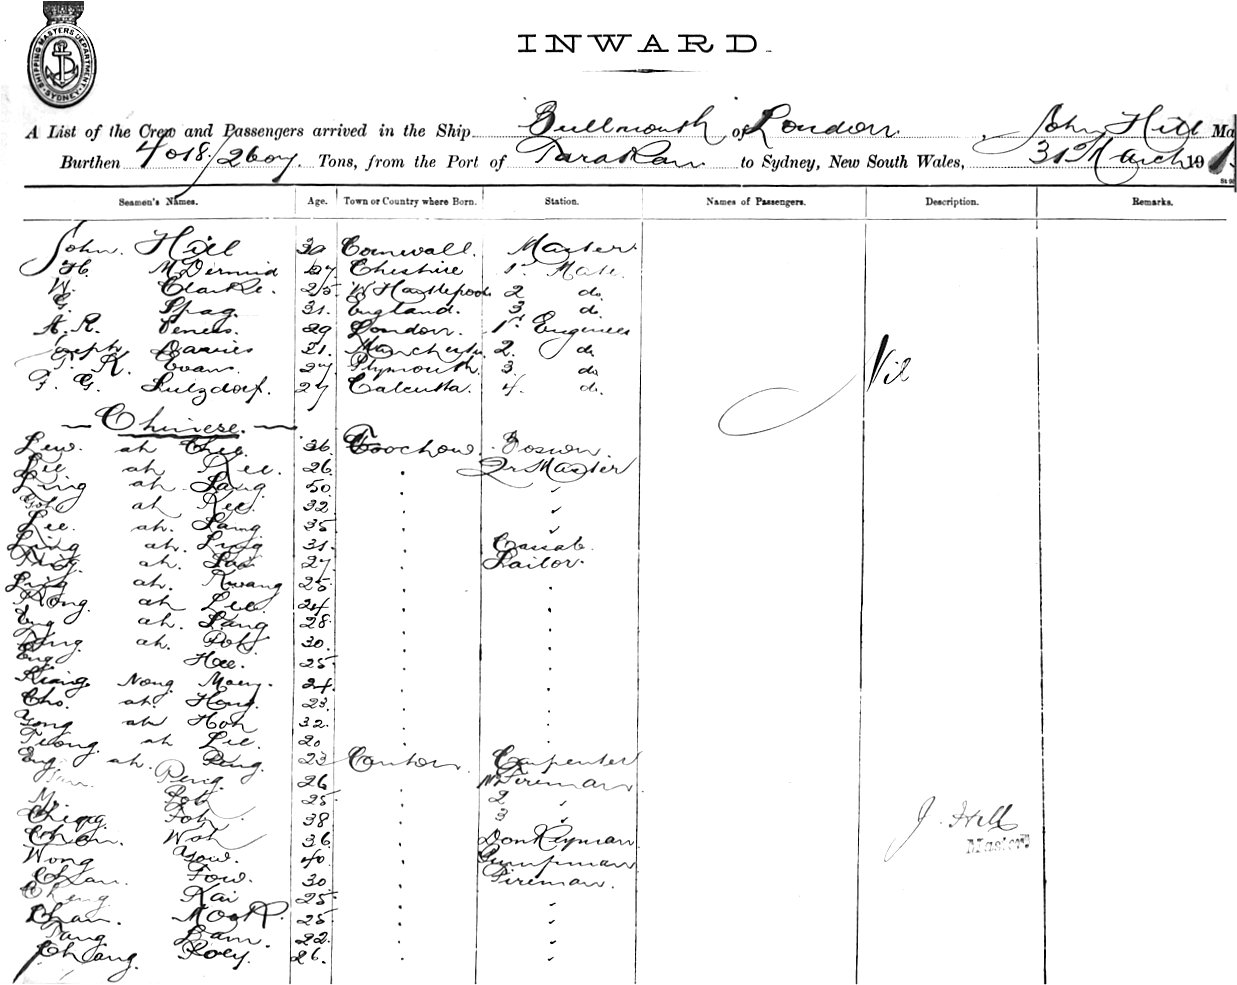 SHIPPING MASTERS DEPARTMENT SYDNEY
INWARD.
A List of the Crew and Passengers arrived in the Ship Bullmouth of London, John Hill Ma
Burthen 4018/2607 Tons, from the Port of Tarakan to Sydney, New South Wales, 31 March 191
Seamen's Names. Age. Town or Country where Born. Station. Names of Passengers. Description. Remarks.
John Hill 39 Cornwall Master
H. McDermid 27 Cheshire 1st Mate
W. Clarke. 25 W Hartlepool 2 do
G. 31. England. 3 do
A. R. Veness. 29 London. 1st Engineer
Joseph Davies 31. Manchester 2. do
T. R. Evans. 27 Plymouth 3. do
F. G. Sulzdorf. 27 Calcutta. 4. do.
Nil
Chinese.
Lew. ah Chee. 36 Foochow. Boswn.
Lee ah Kee. 26 Qr Master
Ling ah Sang 50
Goh ah Kee. 32
Lee. ah. Sang 35
Ling ah. Ling 31. Cassab.
ah. 27 Sailor.
Ling ah. Kwang 25
Kong ah Lee. 24
Eng ah. Sang 28
Ting ah. 30.
Eng Hee. 25
Kiang Nong Moey. 24
Cho. ah. Hong. 23
Yong ah Hoh 32.
Tiong ah Lee. 20
Eng ah. Ping. 23 Canton Carpenter
Peng 26 No 1 Fireman
Foh 25 2
Foh 38 3
Chan. Woh 36 Donkeyman
Wong Yow. 40 Pumpman
Chan. Fow. 30 Fireman.
Cheng Kai 25
Chan. Mook. 25
Tang Lam. 22
Chang. Koey. 26.
J. Hill
Master